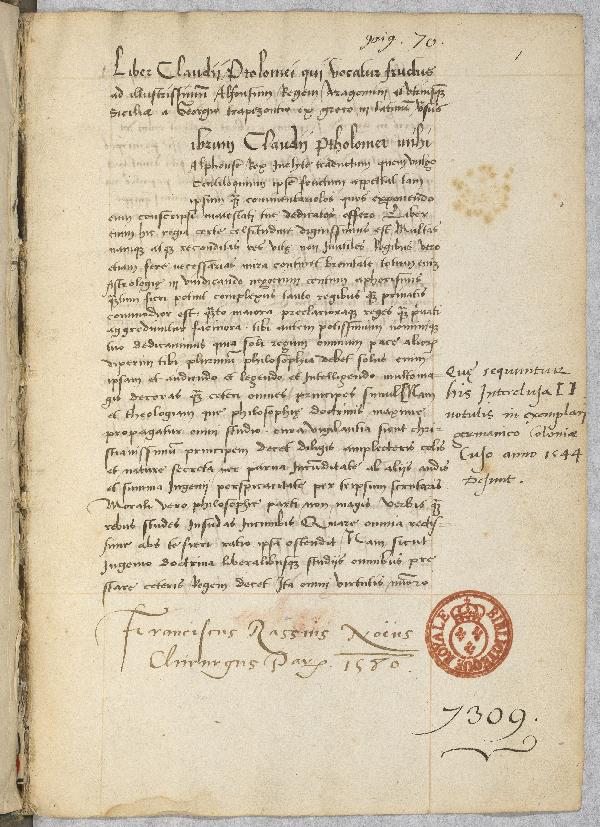 gig. 70.
1
Liber Claudij Ptolomei qui vocatur fructus
ad illustrissimum Alfonsum Regem Aragonum et utriusq;
Siciliæ a Georgio trapezontio ex greco in latinum versus
ibrum Claudij Ptholomei mihi
Alphonse Rex Inclyte traductum quem vulgo
Centiloquium ipse fructum appellat tam
ipsum q; commentariolos quos exponendo
eum conscripsi maiestati tue dedicatos offero. Liber
enim hic regia certe celsitudine dignissimus est Multas
namque atq; reconditas res vite non inutiles Regibus vero
etiam fere necessarias mira continet brevitate totum enim
Astrologie in iudicando negocium centum aphorismis
fieri potuit complexus tanto regibus q; privatis
commodior est quanto maiora preclarioraque reges q; privati
aggrediuntur facinora. tibi autem potissimum nominique
tuo dedicavimus quia soli regum omnium pace aliorum
dixerim tibi plurimum philosophia debet solus enim
ipsam et audiendo et legendo et Intelligendo
decoras q; ceteri omnes principes simul [Nam
et theologiam que philosophie doctrinis maxime
propagatur omni studio cura vigilantia sicut chri-
stianissimum principem decet diligis amplecteris colis
et nature secreta nec parva Iucunditate ab alijs audis
et summa Ingenij perspicacitate per teipsum scrutaris
Morali vero philosophie parti non magis verbis q;
rebus studes Insudas Incumbis Quare omnia rectis-
sime abs te fieri ratio ipsa ostendit Nam sicut
Ingenio doctrina liberalibusque studijs omnibus pre
stare ceteris Regem decet Ita omni virtutis
Quę sequuntur
his Interclusa [ ]
notulis in exemplari
germanico Coloniæ
cuso anno 1544
Desunt.
Franciscus Rassius Noëus
Chirurgus Par. 1580.
BIBLIOTHEQUE ROYALE
7309.